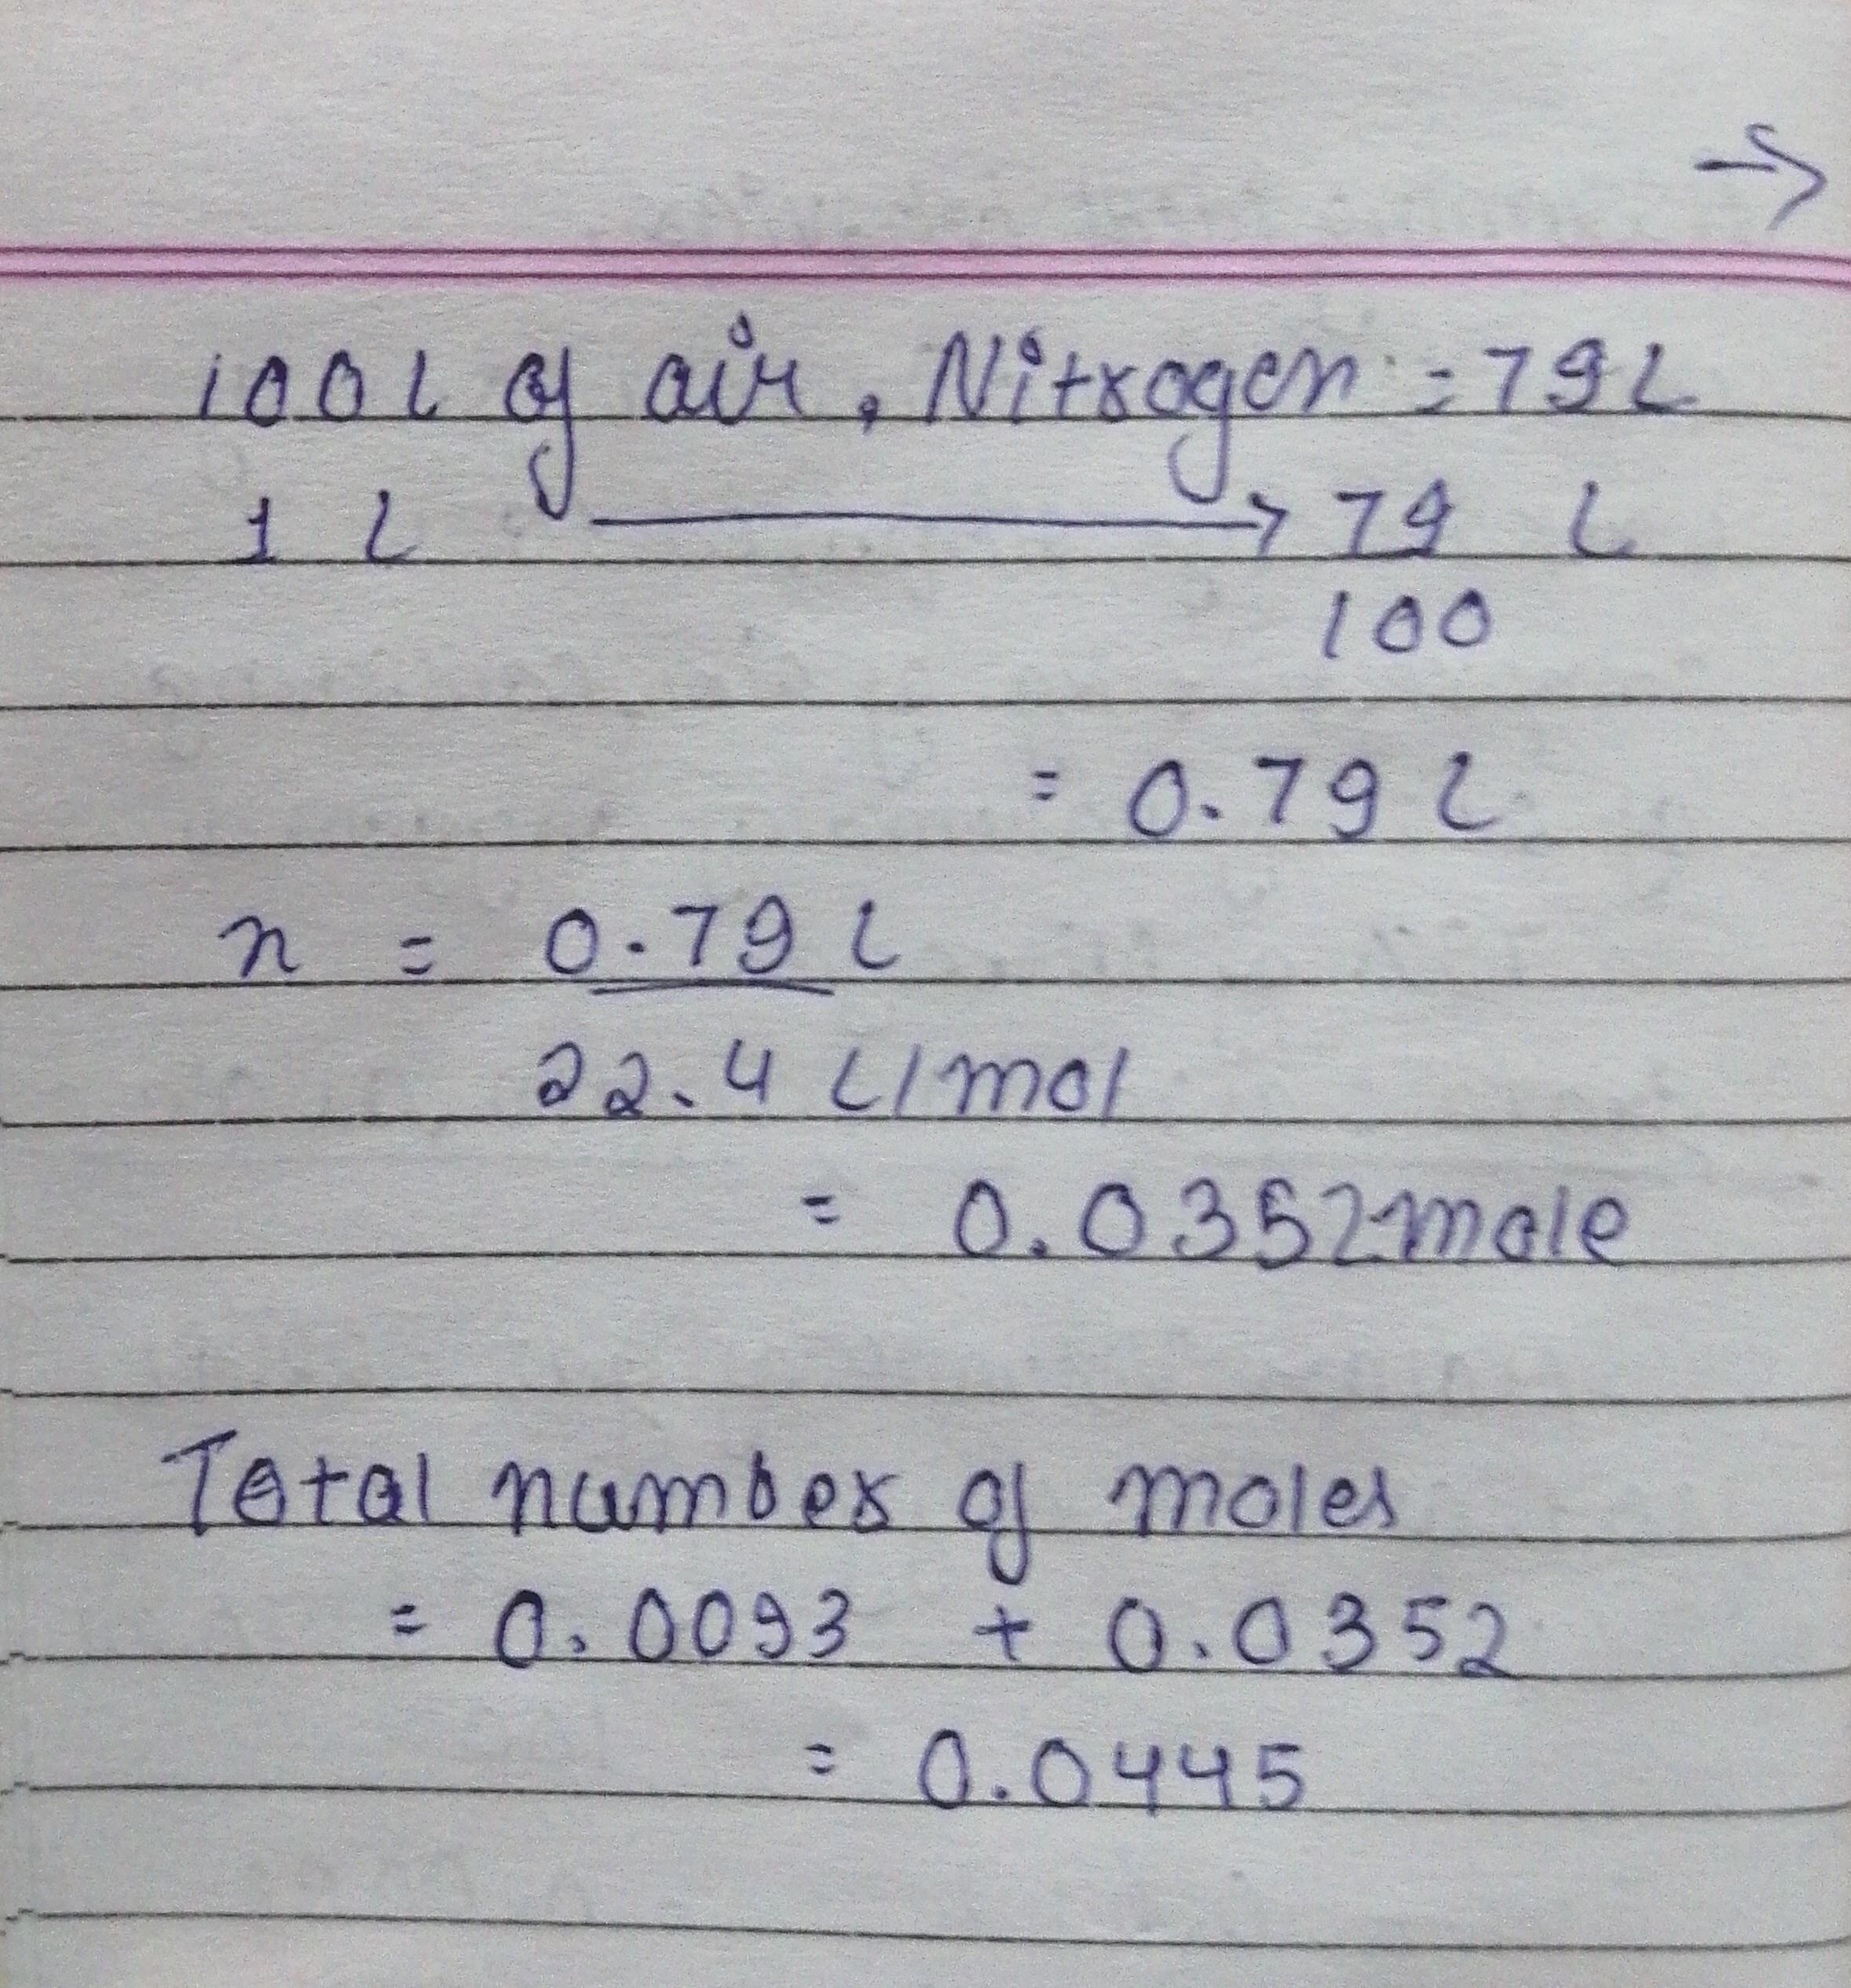 →
100 L of air, Nitrogen = 79 L
1 L → 79 L
100
= 0.79 L
n = 0.79 L
22.4 L/mol
= 0.0352 mole
Total number of moles
= 0.0093 + 0.0352
= 0.0445